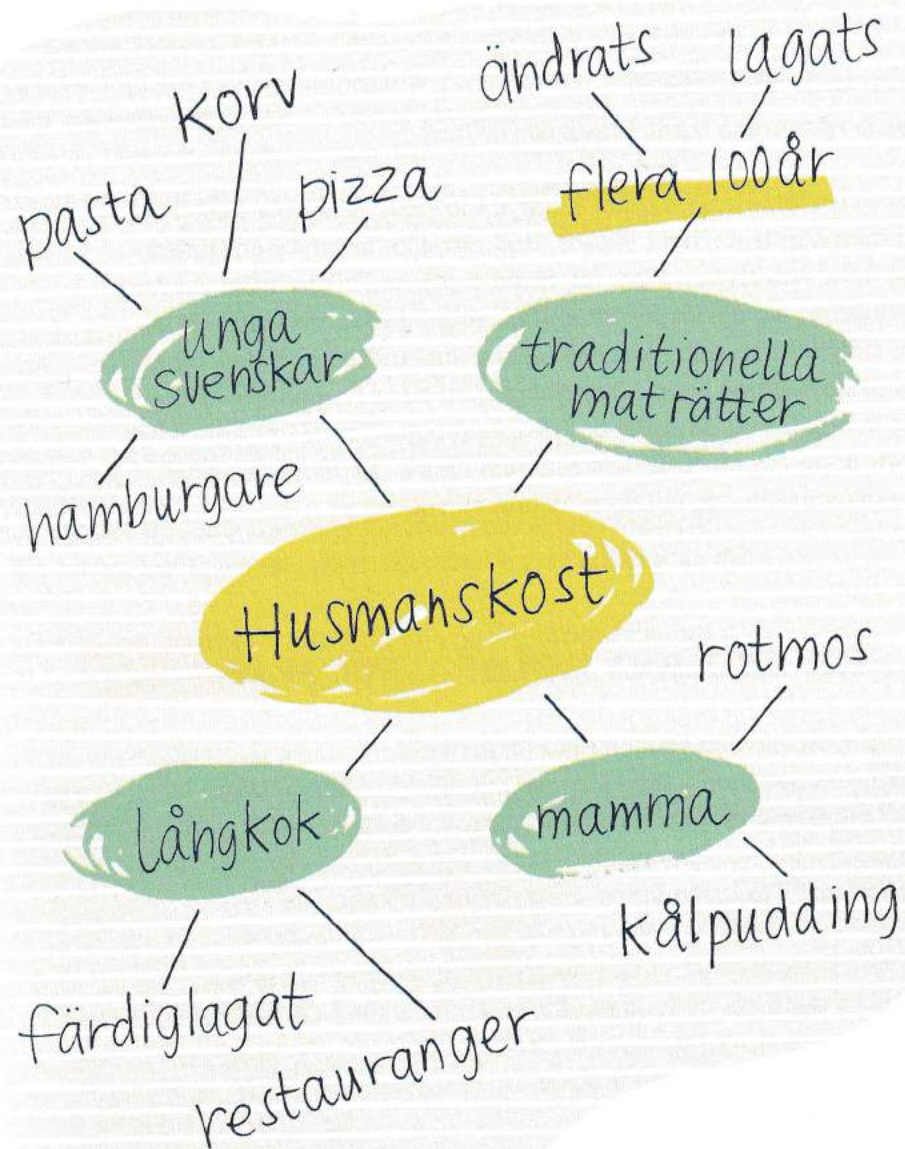 ändrats
lagats
korv
pasta
pizza
flera 100 år
unga
svenskar
traditionella
maträtter
hamburgare
Husmanskost
rotmos
långkok
mamma
kålpudding
färdiglagat
restauranger